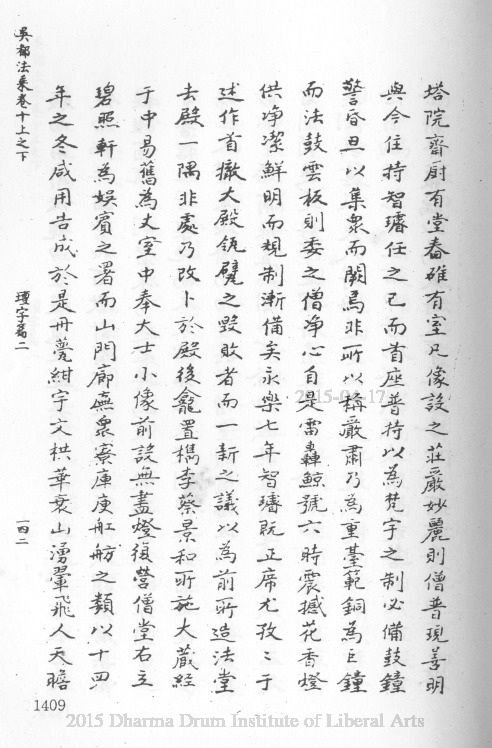 塔院齋厨有堂舂碓有室凡像設之莊嚴妙麗則僧普現善明
與今住持智璿任之已而首座普持以為梵宇之制必備鼓鐘
警昏旦以集衆而闕焉非所以稱嚴肅乃為重臺範銅為巨鐘
而法鼓雲板則委之僧淨心自是雷轟鯨號六時震撼花香燈
供净潔鮮明而規制漸備矣永樂七年智璿既正席尤孜〻于
述作首撤大殿瓴甓之毀敗者而一新之議以為前所造法堂
去殿一隅非處乃改卜於殿後龕置檇李蔡景和所施大藏經
于中易舊為丈室中奉大士小像前設無盡燈復營僧堂右立
碧照軒為娛賓之署而山門廊廡衆寮庫庾舡舫之類以十四
年之冬咸用告成於是丹甍紺宇文栱華衰山湧翬飛人天瞻
吳都法乘卷十上之下
壇字篇二
一四二
1409
2015 Dharma Drum Institute of Liberal Arts